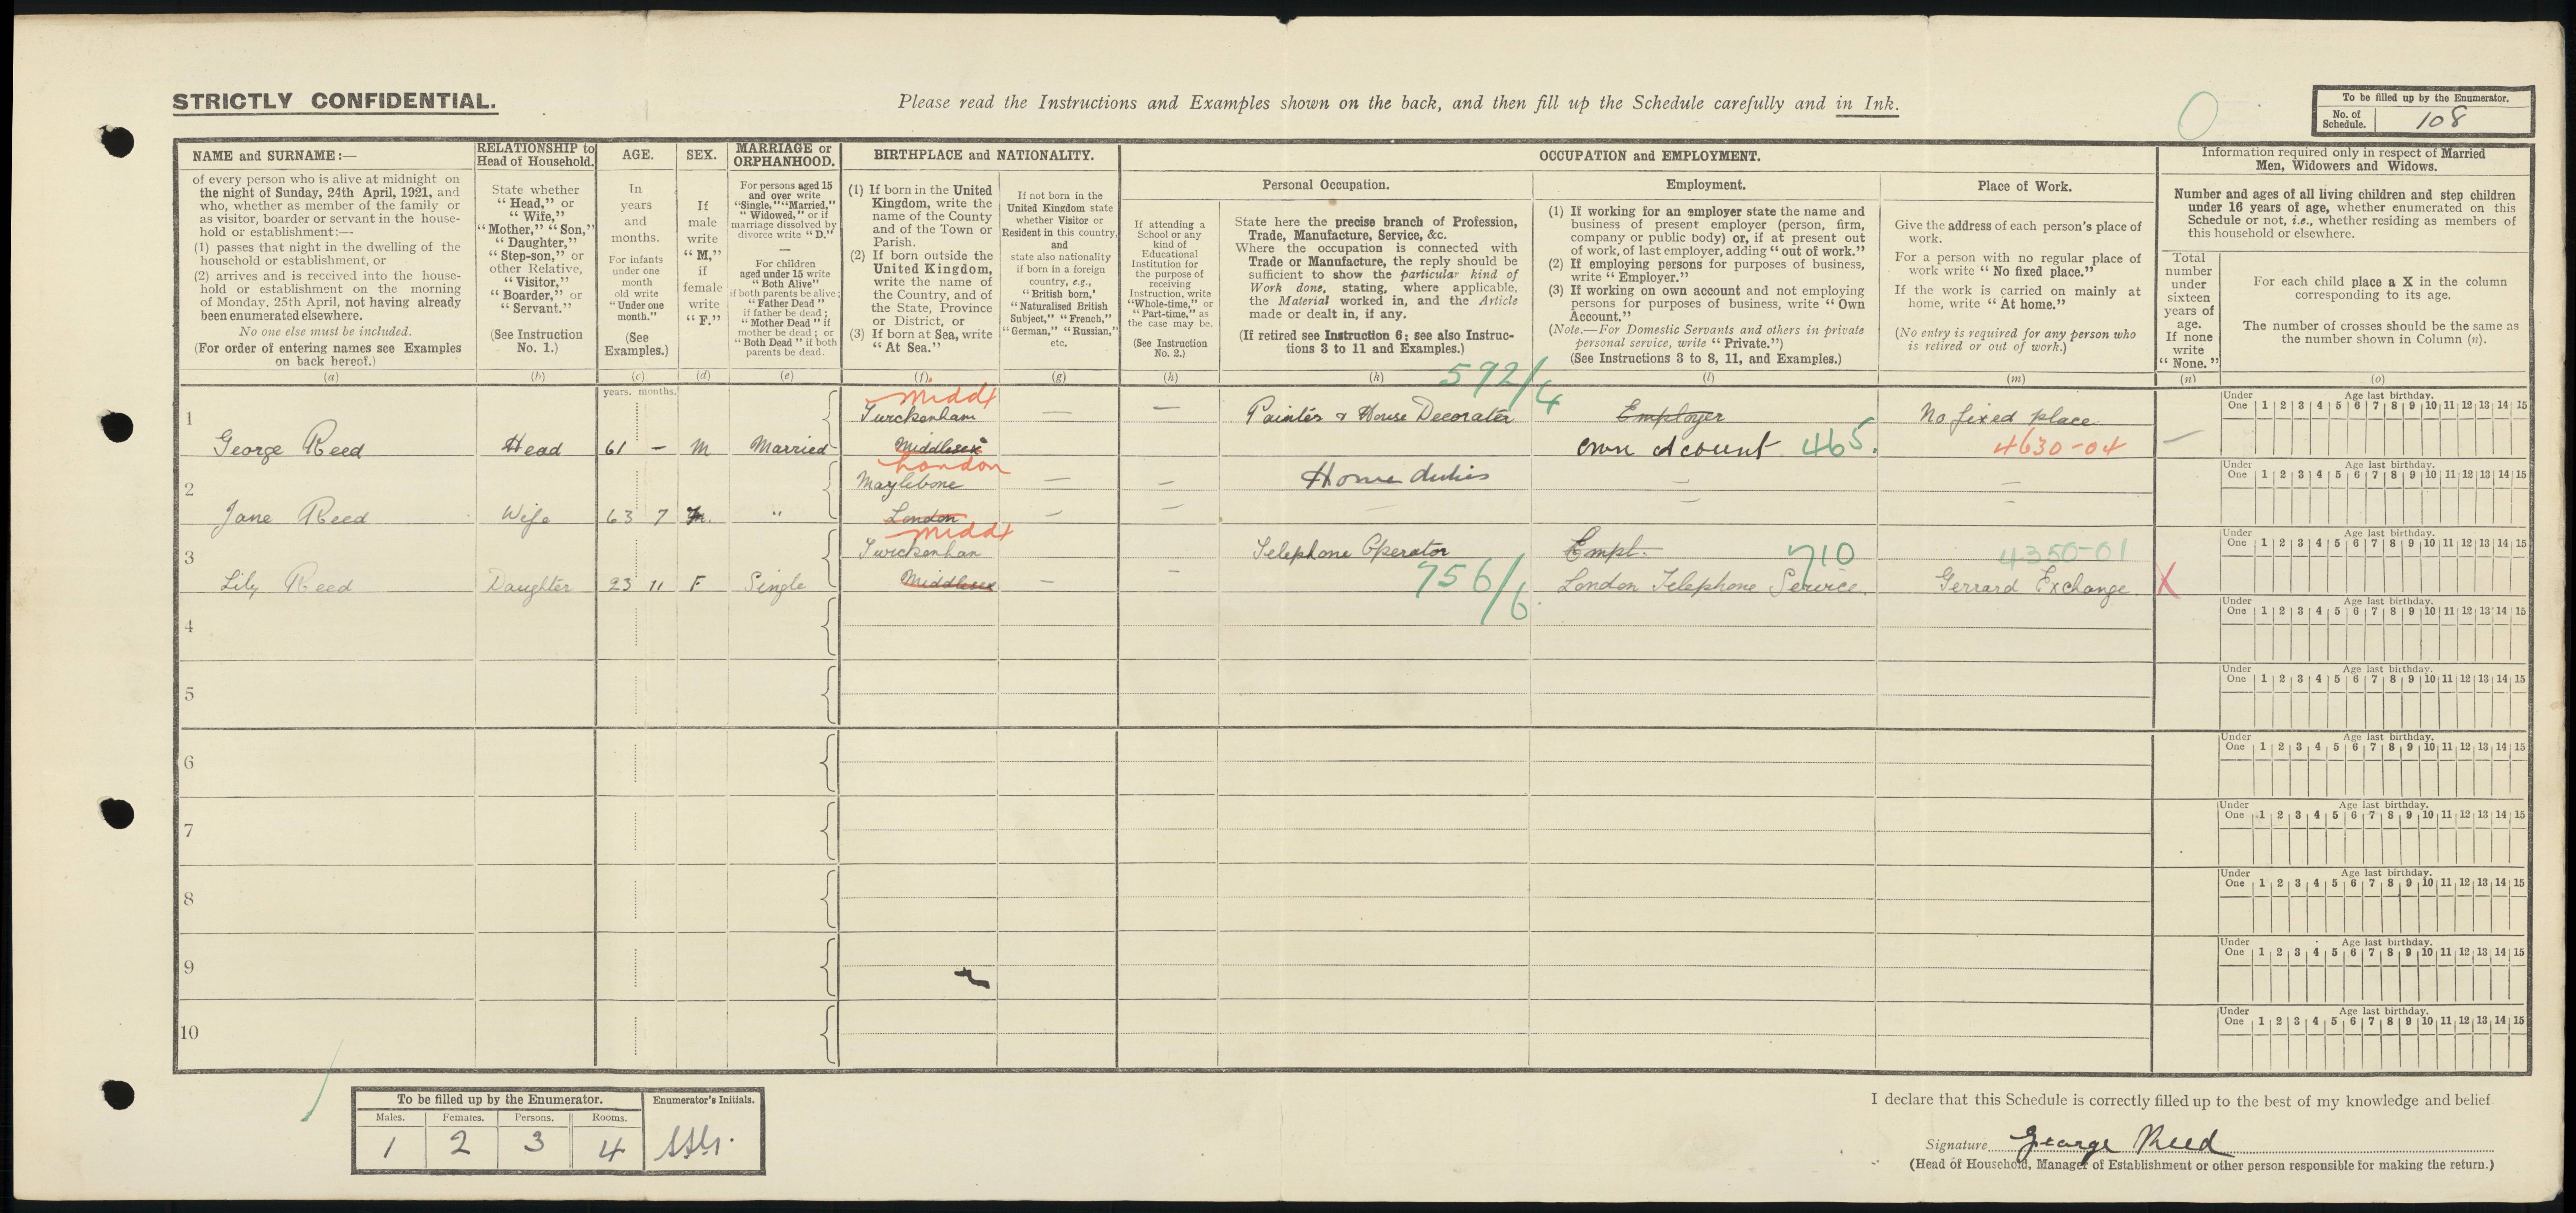 STRICTLY CONFIDENTIAL.
Please read the Instructions and Examples shown on the back, and then fill up the Schedule carefully and in Ink.
To be filled up by the Enumerator.
No. of Schedule. 108
NAME and SURNAME:—
of every person who is alive at midnight on
the night of Sunday, 24th April, 1921, and
who, whether as member of the family or
as visitor, boarder or servant in the house-
hold or establishment:—
(1) passes that night in the dwelling of the
household or establishment, or
(2) arrives and is received into the house-
hold or establishment on the morning
of Monday, 25th April, not having already
been enumerated elsewhere.
No one else must be included.
(For order of entering names see Examples
on back hereof.)
(a)
RELATIONSHIP to
Head of Household.
State whether
"Head," or
"Wife,"
"Mother," "Son,"
"Daughter,"
"Step-son," or
other Relative,
"Visitor,"
"Boarder," or
"Servant."
(See Instruction
No. 1.)
(b)
AGE.
In
years
and
months.
For infants
under one
month
old write
"Under one
month."
(See
Examples.)
(c)
SEX.
If
male
write
"M,"
if
female
write
"F."
(d)
MARRIAGE or
ORPHANHOOD.
For persons aged 15
and over write
"Single," "Married,"
"Widowed," or if
marriage dissolved by
divorce write "D."
—
For children
aged under 15 write
"Both Alive"
if both parents be alive;
"Father Dead"
if father be dead;
"Mother Dead" if
mother be dead; or
"Both Dead" if both
parents be dead.
(e)
BIRTHPLACE and NATIONALITY.
(1) If born in the United
Kingdom, write the
name of the County
and of the Town or
Parish.
(2) If born outside the
United Kingdom,
write the name of
the Country, and of
the State, Province
or District, or
(3) If born at Sea, write
"At Sea."
(f)
If not born in the
United Kingdom state
whether Visitor or
Resident in this country,
and
state also nationality
if born in a foreign
country, e.g.,
"British born,"
"Naturalised British
Subject," "French,"
"German," "Russian,"
etc.
(g)
OCCUPATION and EMPLOYMENT.
If attending a
School or any
kind of
Educational
Institution for
the purpose of
receiving
Instruction, write
"Whole-time," or
"Part-time," as
the case may be.
(See Instruction
No. 2.)
(h)
Personal Occupation.
State here the precise branch of Profession,
Trade, Manufacture, Service, &c.
Where the occupation is connected with
Trade or Manufacture, the reply should be
sufficient to show the particular kind of
Work done, stating, where applicable,
the Material worked in, and the Article
made or dealt in, if any.
(If retired see Instruction 6; see also Instruc-
tions 3 to 11 and Examples.)
(k)
Employment.
(1) If working for an employer state the name and
business of present employer (person, firm,
company or public body) or, if at present out
of work, of last employer, adding "out of work."
(2) If employing persons for purposes of business,
write "Employer."
(3) If working on own account and not employing
persons for purposes of business, write "Own
Account."
(Note.—For Domestic Servants and others in private
personal service, write "Private.")
(See Instructions 3 to 8, 11, and Examples.)
(l)
Place of Work.
Give the address of each person's place of
work.
For a person with no regular place of
work write "No fixed place."
If the work is carried on mainly at
home, write "At home."
(No entry is required for any person who
is retired or out of work.)
(m)
Information required only in respect of Married
Men, Widowers and Widows.
Number and ages of all living children and step children
under 16 years of age, whether enumerated on this
Schedule or not, i.e., whether residing as members of
this household or elsewhere.
Total
number
under
sixteen
years of
age.
If none
write
"None."
(n)
For each child place a X in the column
corresponding to its age.
The number of crosses should be the same as
the number shown in Column (n).
(o)
years. months.
1
Middx
592/4
Twickenham — — Painter & House Decorater Employer No fixed place
George Reed Head 61 – M Married Middlesex own Account 465. 4630-04 —
Under One 1 2 3 4 5 6 7 8 9 10 11 12 13 14 15
Age last birthday.
2
London
Maylebone — — Home duties — —
Jane Reed Wife 63 7 F. " London — — — —
Under One 1 2 3 4 5 6 7 8 9 10 11 12 13 14 15
Age last birthday.
3
Middx
Twickenhan Telephone Operator Empl. 710 4350-01
Lily Reed Daughter 23 11 F Single Middlesex — — 756/6 London Telephone Service. Gerrard Exchange. X
Under One 1 2 3 4 5 6 7 8 9 10 11 12 13 14 15
Age last birthday.
4
Under One 1 2 3 4 5 6 7 8 9 10 11 12 13 14 15
Age last birthday.
5
Under One 1 2 3 4 5 6 7 8 9 10 11 12 13 14 15
Age last birthday.
6
Under One 1 2 3 4 5 6 7 8 9 10 11 12 13 14 15
Age last birthday.
7
Under One 1 2 3 4 5 6 7 8 9 10 11 12 13 14 15
Age last birthday.
8
Under One 1 2 3 4 5 6 7 8 9 10 11 12 13 14 15
Age last birthday.
9
Under One 1 2 3 4 5 6 7 8 9 10 11 12 13 14 15
Age last birthday.
10
Under One 1 2 3 4 5 6 7 8 9 10 11 12 13 14 15
Age last birthday.
To be filled up by the Enumerator.
Enumerator's Initials.
Males. Females. Persons. Rooms.
1 2 3 4
I declare that this Schedule is correctly filled up to the best of my knowledge and belief
Signature George Reed
(Head of Household, Manager of Establishment or other person responsible for making the return.)